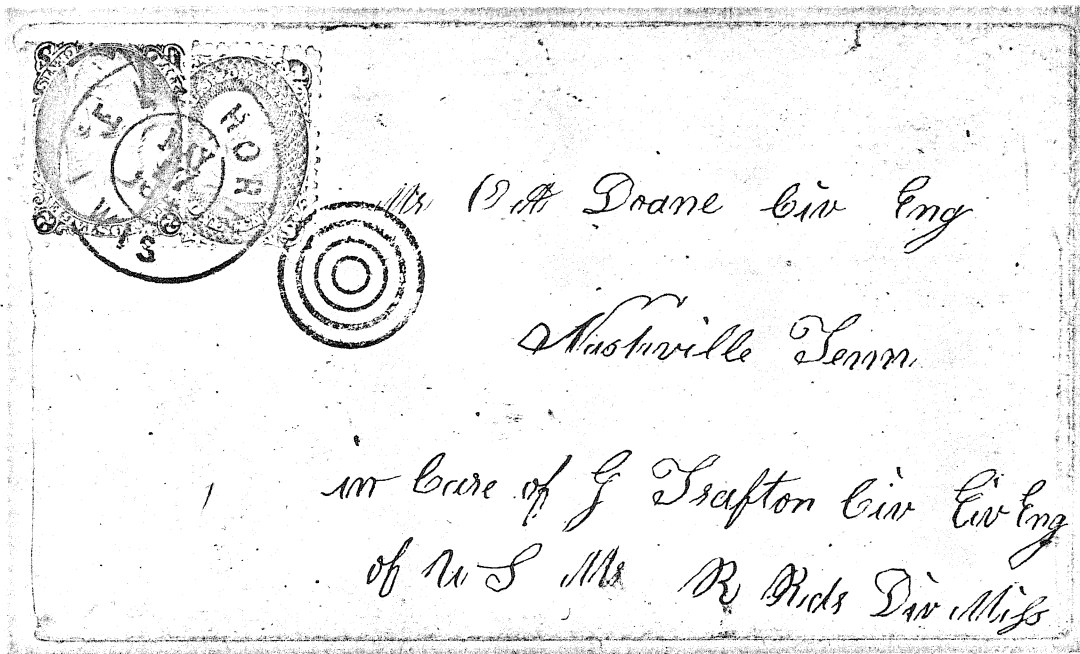 HORI
WIS
Mr D A Doane Civ Eng
Nashville Tenn
in Care of G Trafton Civ Civ Eng
of U S M R Rds Div Miss